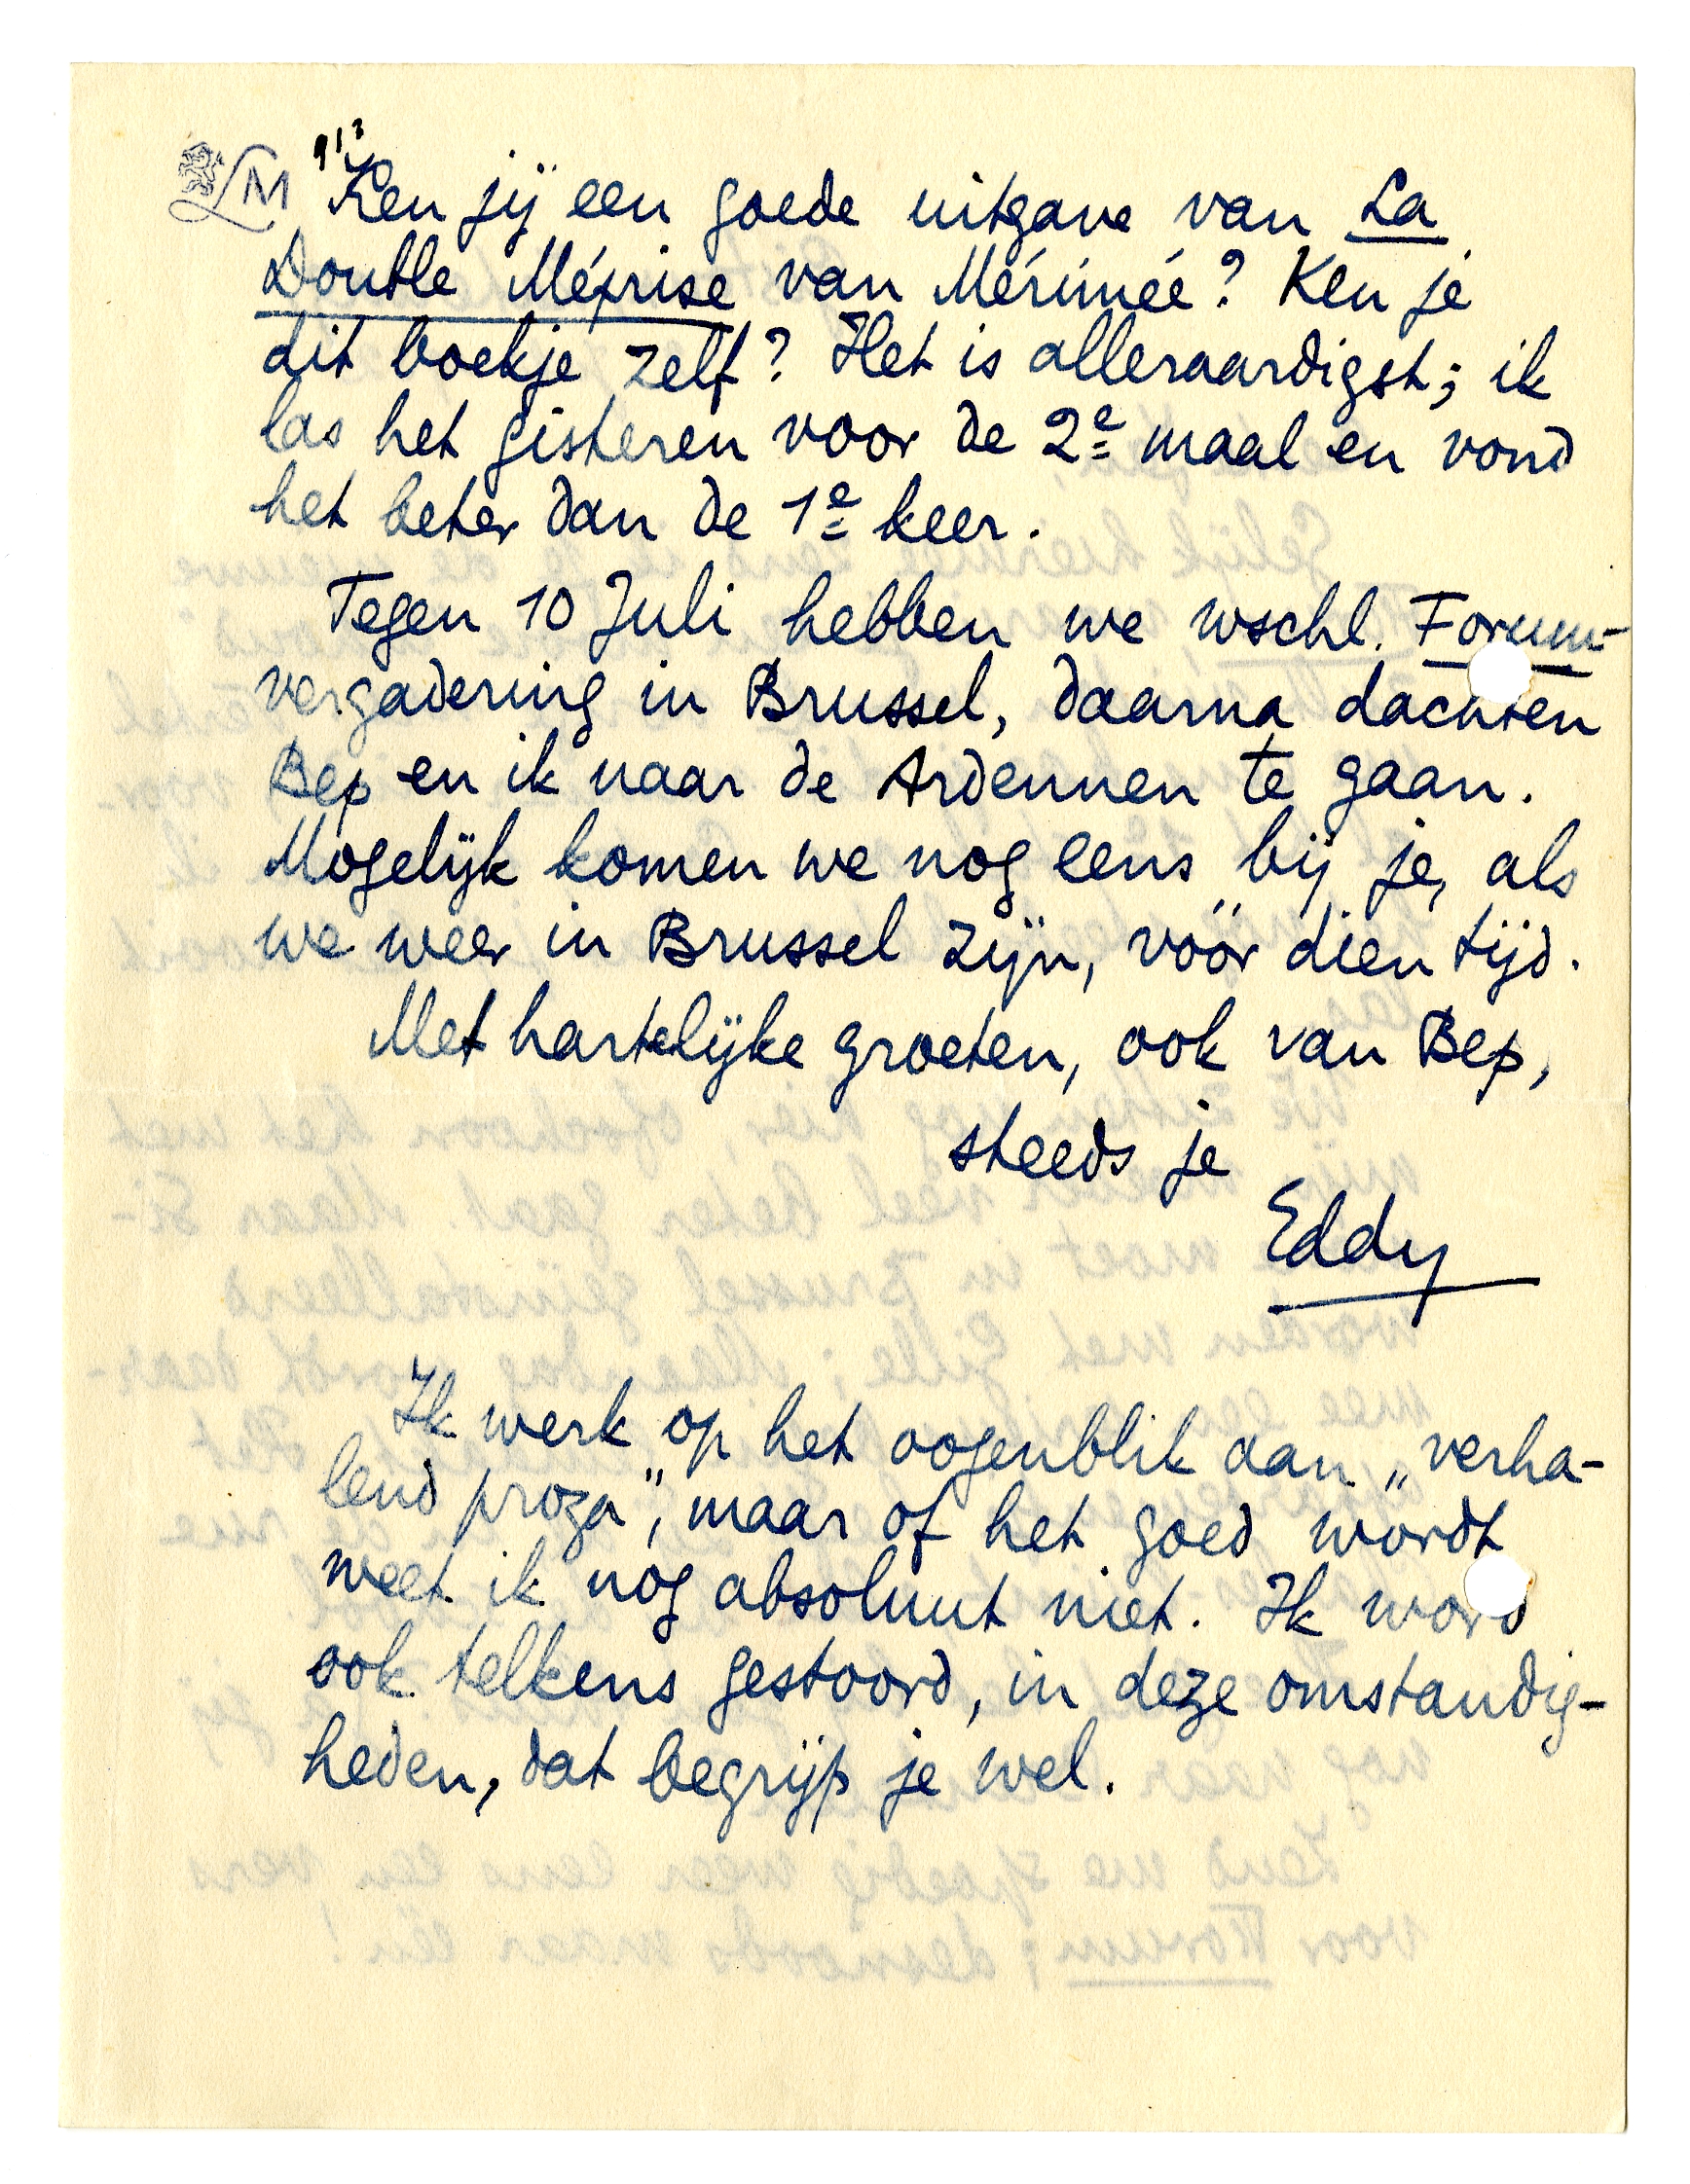 LM
Ken jij een goede uitgave van La
Double Méprise van Mérimée? Ken je
dit boekje zelf? Het is alleraardigst; ik
las het gisteren voor de 2e maal en vond
het beter dan de 1e keer.
Tegen 10 Juli hebben we wschl. Forum-
vergadering in Brussel, daarna dachten
Bep en ik naar de Ardennen te gaan.
Mogelijk komen we nog eens bij je, als
we weer in Brussel zijn, vóór dien tijd.
Met hartelijke groeten, ook van Bep,
steeds je
Eddy
Ik werk op het oogenblik aan „verha-
lend proza”, maar of het goed wordt
weet ik nog absoluut niet. Ik word
ook telkens gestoord, in deze omstandig-
heden, dat begrijp je wel.